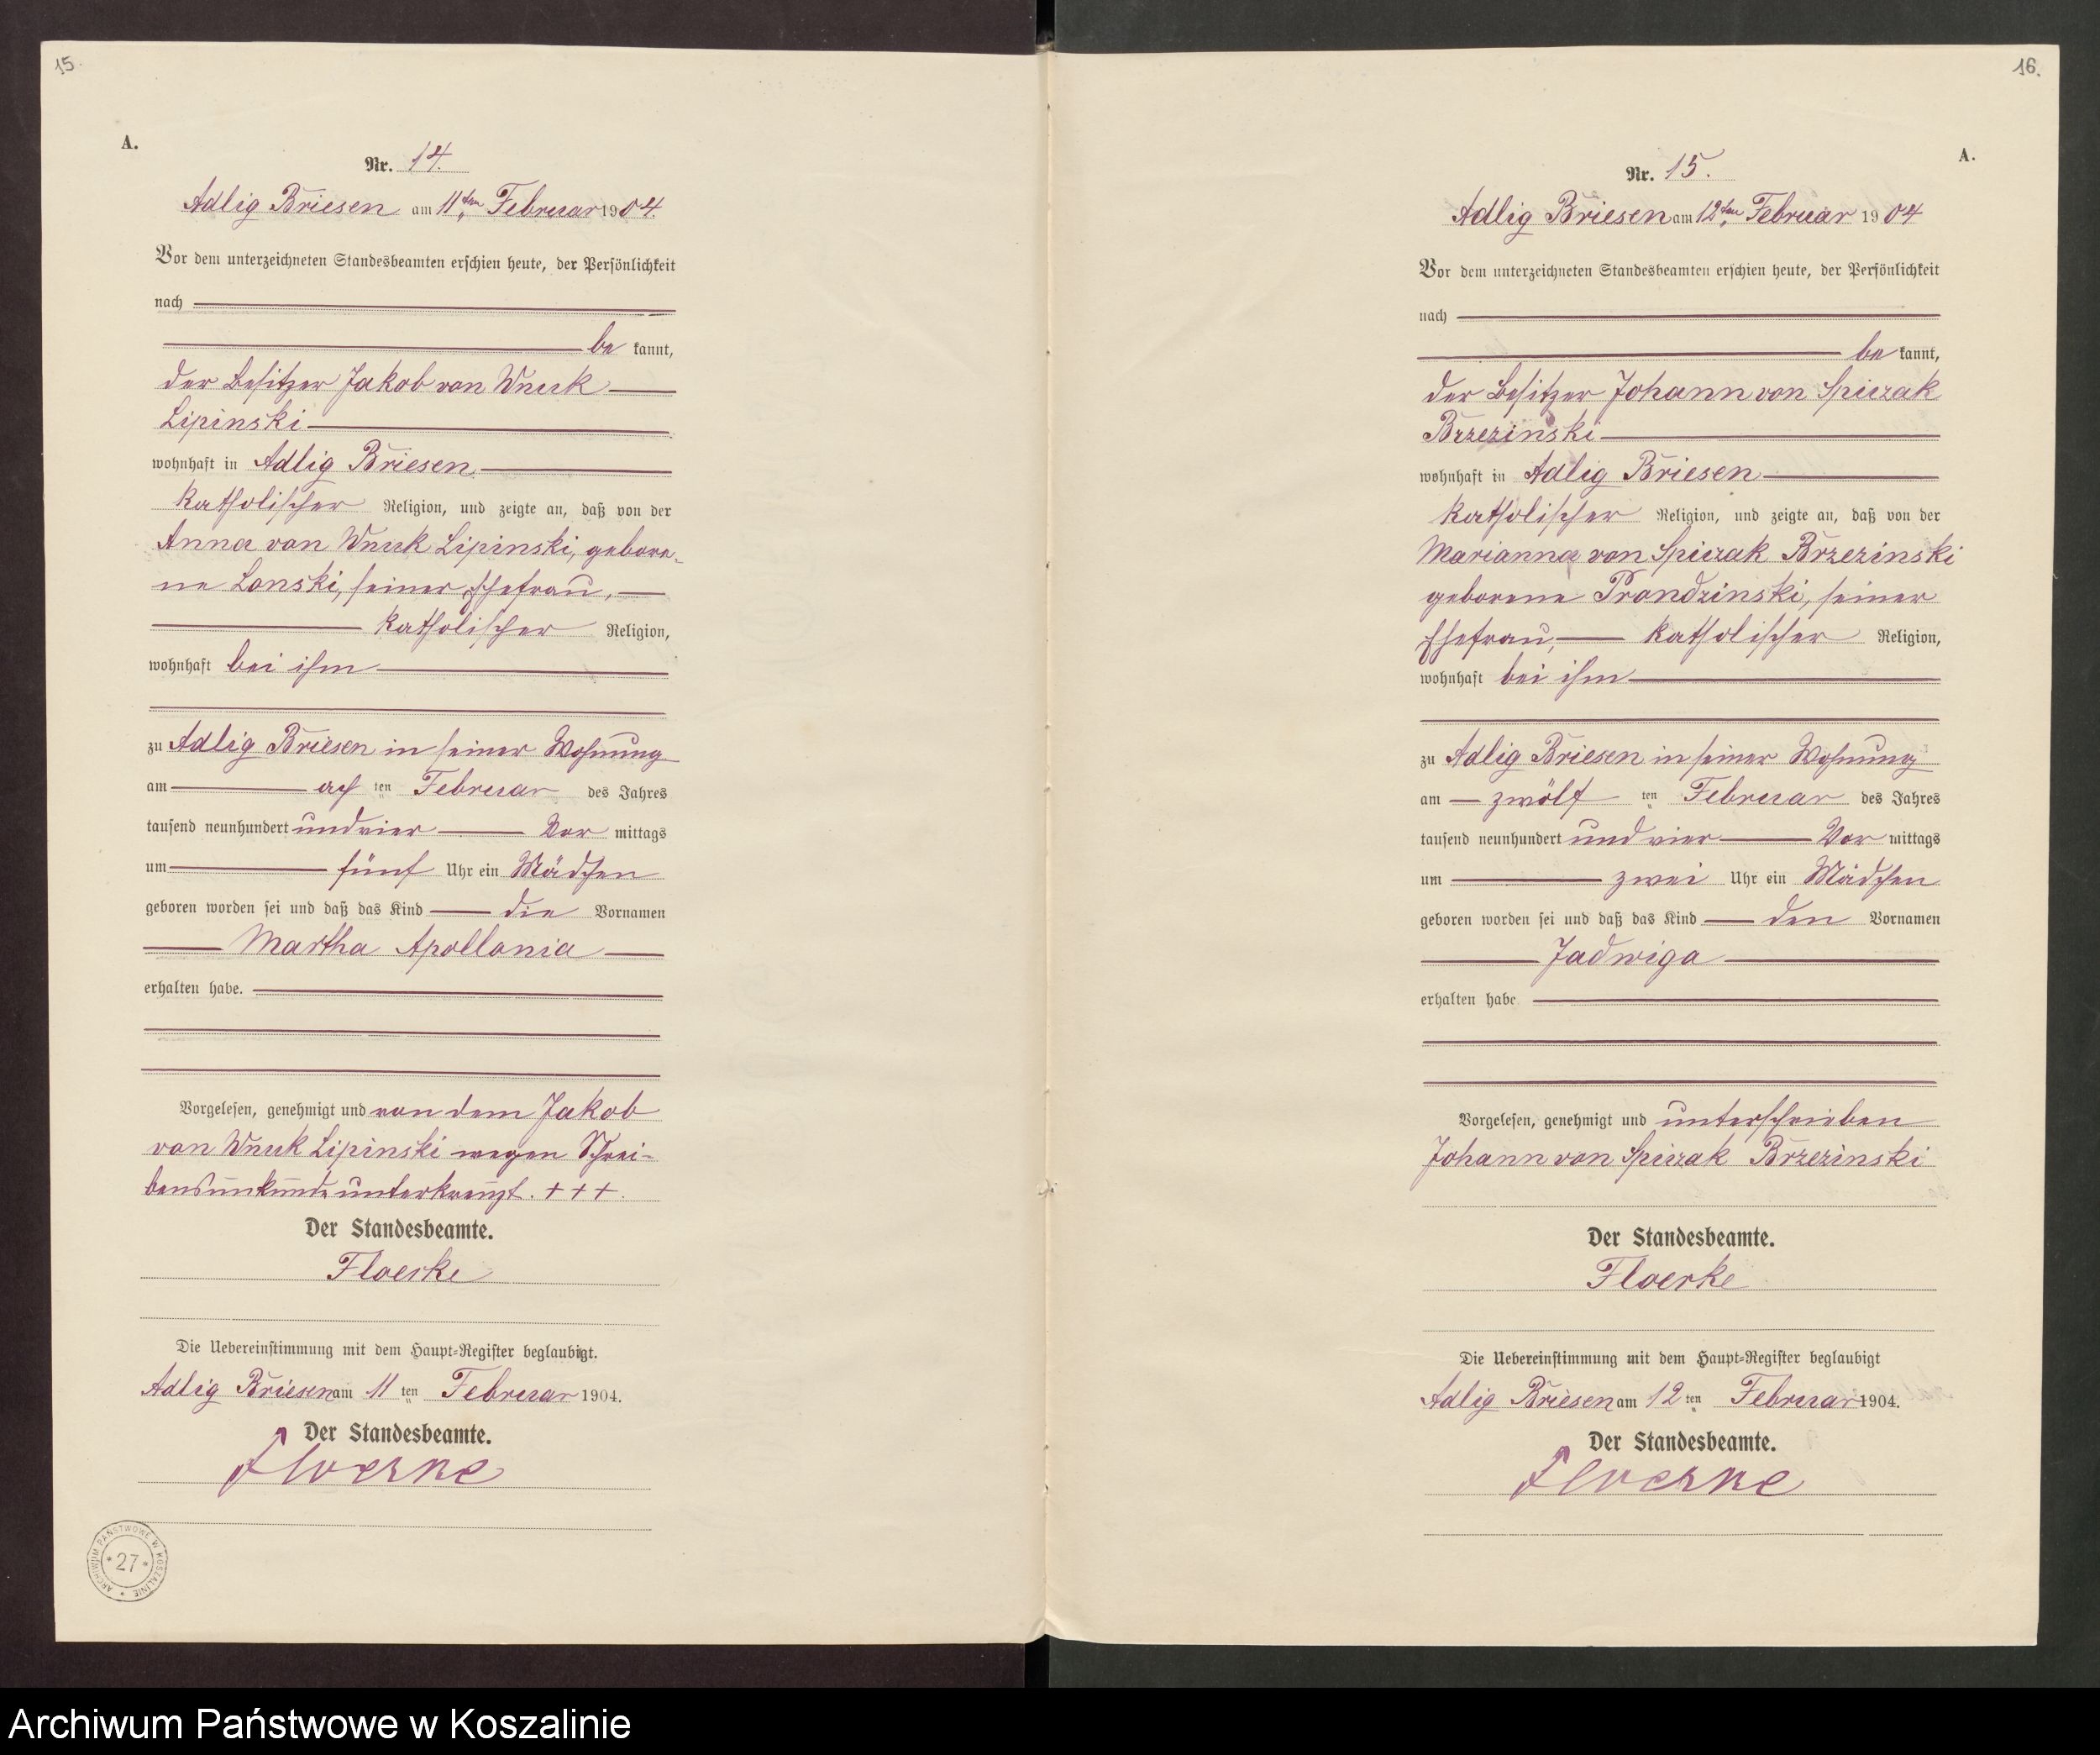 15.
A.
Nr. 14.
Adlig Briesen am 11ten Februar 1904.
Vor dem unterzeichneten Standesbeamten erschien heute, der Persönlichkeit
nach
be kannt,
der Besitzer Jakob von Wnuk
Lipinski
wohnhaft in Adlig Briesen
katholischer Religion, und zeigte an, daß von der
Anna von Wnuk Lipinski, gebore-
ne Lonski, seiner Ehefrau,
katholischer Religion,
wohnhaft bei ihm
zu Adlig Briesen in seiner Wohnung
am ach ten Februar des Jahres
tausend neunhundert und vier Vor mittags
um fünf Uhr ein Mädchen
geboren worden sei und daß das Kind die Vornamen
Martha Apollonia
erhalten habe.
Vorgelesen, genehmigt und von dem Jakob
von Wnuk Lipinski wegen Schrei-
bensunkunde unterkreuzt. +++.
Der Standesbeamte.
Floerke
Die Uebereinstimmung mit dem Haupt-Register beglaubigt.
Adlig Briesen am 11 ten Februar 1904.
Der Standesbeamte.
Floerke
ARCHIWUM PAŃSTWOWE W KOSZALINIE * 27 *
16.
A.
Nr. 15.
Adlig Briesen am 12ten Februar 1904
Vor dem unterzeichneten Standesbeamten erschien heute, der Persönlichkeit
nach
be kannt,
der Besitzer Johann von Spiczak
Brzezinski
wohnhaft in Adlig Briesen
katholischer Religion, und zeigte an, daß von der
Marianna von Spiczak Brzezinski
geborene Prondzinski, seiner
Ehefrau, katholischer Religion,
wohnhaft bei ihm
zu Adlig Briesen in seiner Wohnung
am zwölf ten Februar des Jahres
tausend neunhundert und vier Vor mittags
um zwei Uhr ein Mädchen
geboren worden sei und daß das Kind den Vornamen
Jadwiga
erhalten habe
Vorgelesen, genehmigt und unterschrieben
Johann von Spiczak Brzezinski
Der Standesbeamte.
Floerke
Die Uebereinstimmung mit dem Haupt-Register beglaubigt
Adlig Briesen am 12 ten Februar 1904.
Der Standesbeamte.
Floerke
Archiwum Państwowe w Koszalinie